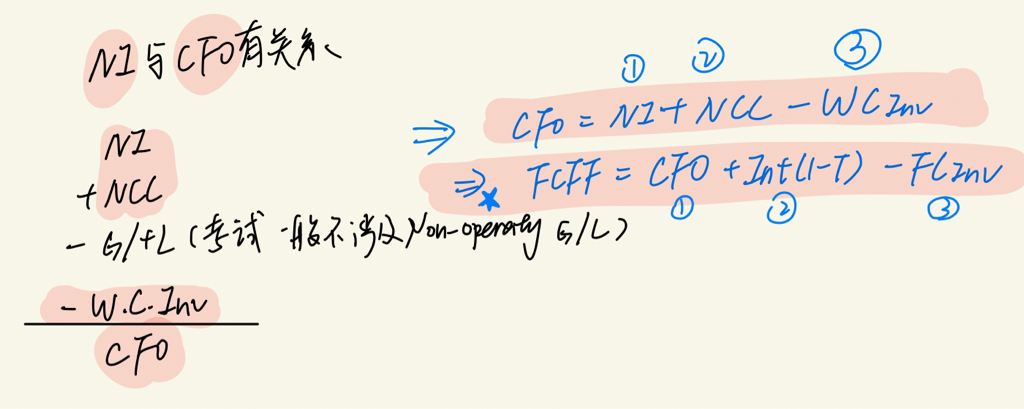 NI与CFO有关系
NI
+ NCC
- G/+L (考试一般不涉及Non-operating G/L)
- W.C.Inv
CFO
① ② ③
⇒ CFO = NI + NCC - WCInv
⇒ ★ FCFF = CFO + Int(1-T) - FCInv
① ② ③